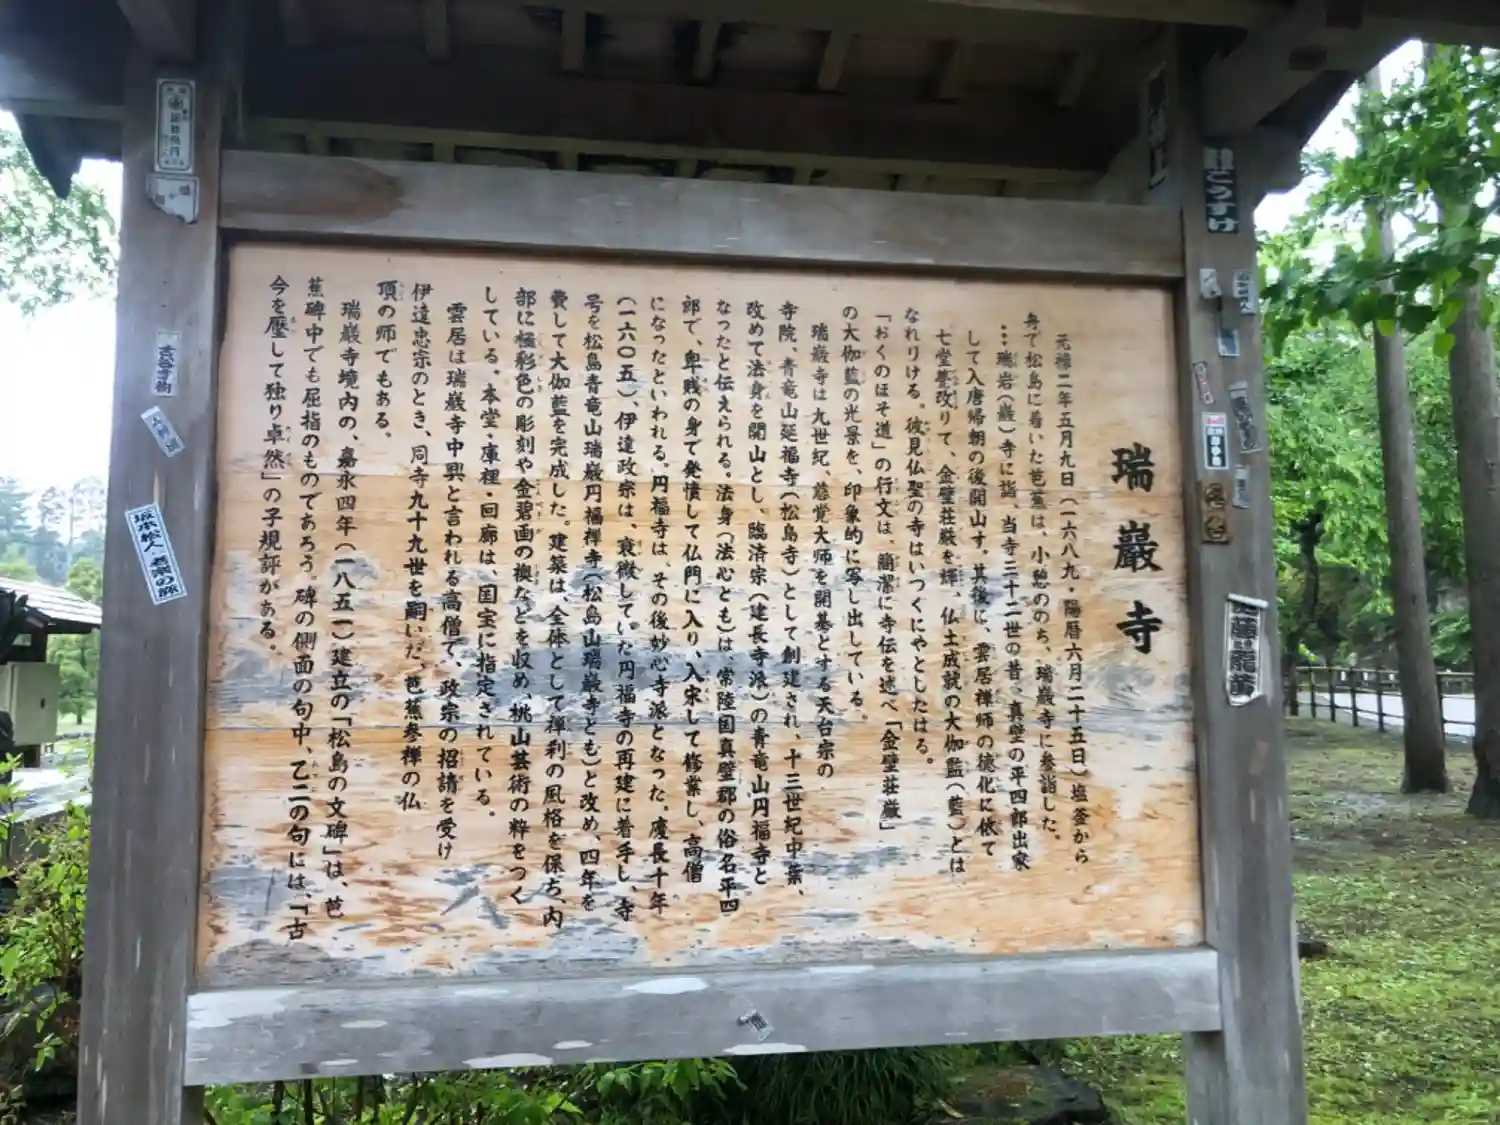 瑞巌寺
元禄二年五月九日(一六八九・陽暦六月二十五日)塩釜から
舟で松島に着いた芭蕉は、小憩ののち、瑞巌寺に参詣した。
…瑞岩(巌)寺に詣、当寺三十二世の昔、真壁の平四郎出家
して入唐帰朝の後開山す。其後に、雲居禅師の徳化に依て
七堂甍改りて、金壁荘厳を輝、仏土成就の大伽監(藍)とは
なれりける。彼見仏聖の寺はいづくにやとしたはる。
「おくのほそ道」の行文は、簡潔に寺伝を述べ「金壁荘厳」
の大伽藍の光景を、印象的に写し出している。
瑞巌寺は九世紀、慈覚大師を開基とする天台宗の
寺院、青竜山延福寺(松島寺)として創建され、十三世紀中葉、
改めて法身を開山とし、臨済宗(建長寺派)の青竜山円福寺と
なったと伝えられる。法身(法心とも)は、常陸国真壁郡の俗名平四
郎で、卑賎の身で発憤して仏門に入り、入宋して修業し、高僧
になったといわれる。円福寺は、その後妙心寺派となった。慶長十年
(一六〇五)、伊達政宗は、衰微していた円福寺の再建に着手し、寺
号を松島青竜山瑞巌円福禅寺(松島山瑞巌寺とも)と改め、四年を
費して大伽藍を完成した。建築は、全体として禅刹の風格を保ち、内
部に極彩色の彫刻や金碧画の襖などを収め、桃山芸術の粋をつく
している。本堂・庫裡・回廊は、国宝に指定されている。
雲居は瑞巌寺中興と言われる高僧で、政宗の招請を受け
伊達忠宗のとき、同寺九十九世を嗣いだ、芭蕉参禅の仏
頂の師でもある。
瑞巌寺境内の、嘉永四年(一八五一)建立の「松島の文碑」は、芭
蕉碑中でも屈指のものであろう。碑の側面の句中、乙二の句には、「古
今を歴して独り卓然」の子規評がある。
こうすけ